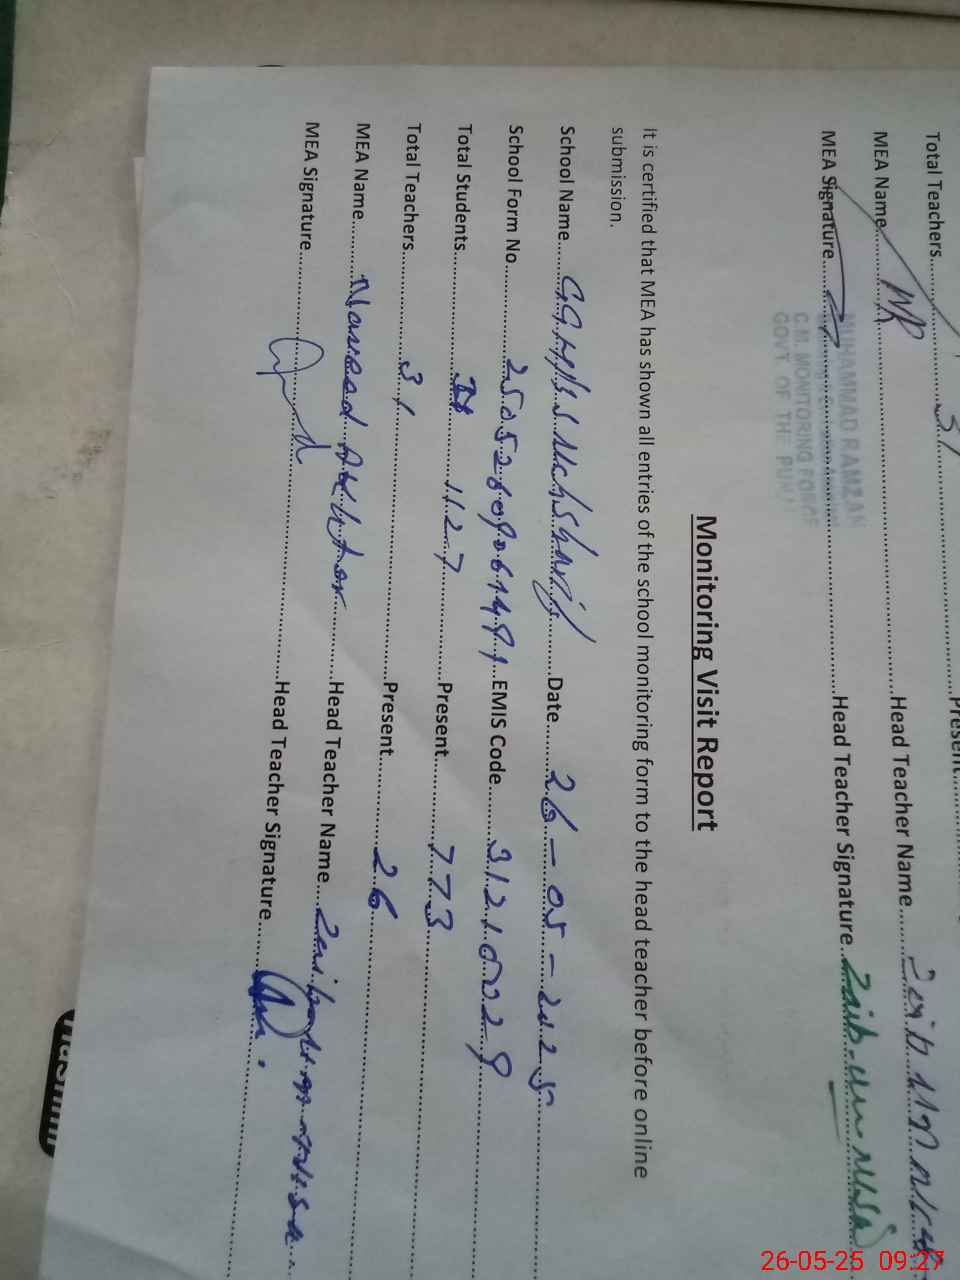 Total Teachers.....31..... Present.....
MEA Name.....MR..... Head Teacher Name.....Zaib un nisa
MEA Signature..... Head Teacher Signature.....Zaib-un-nisa
MUHAMMAD RAMZAN
C.M. MONITORING FORCE
GOVT. OF THE PUNJ
Monitoring Visit Report
It is certified that MEA has shown all entries of the school monitoring form to the head teacher before online
submission.
School Name.....Sharif..... Date.....26-05-2025
School Form No.....EMIS Code.....31210229
Total Students.....1127.....Present.....773
Total Teachers.....31.....Present.....26
MEA Name.....Naveed Akhtar.....Head Teacher Name.....Zaib un nisa
MEA Signature.....Head Teacher Signature.....
26-05-25 09:27